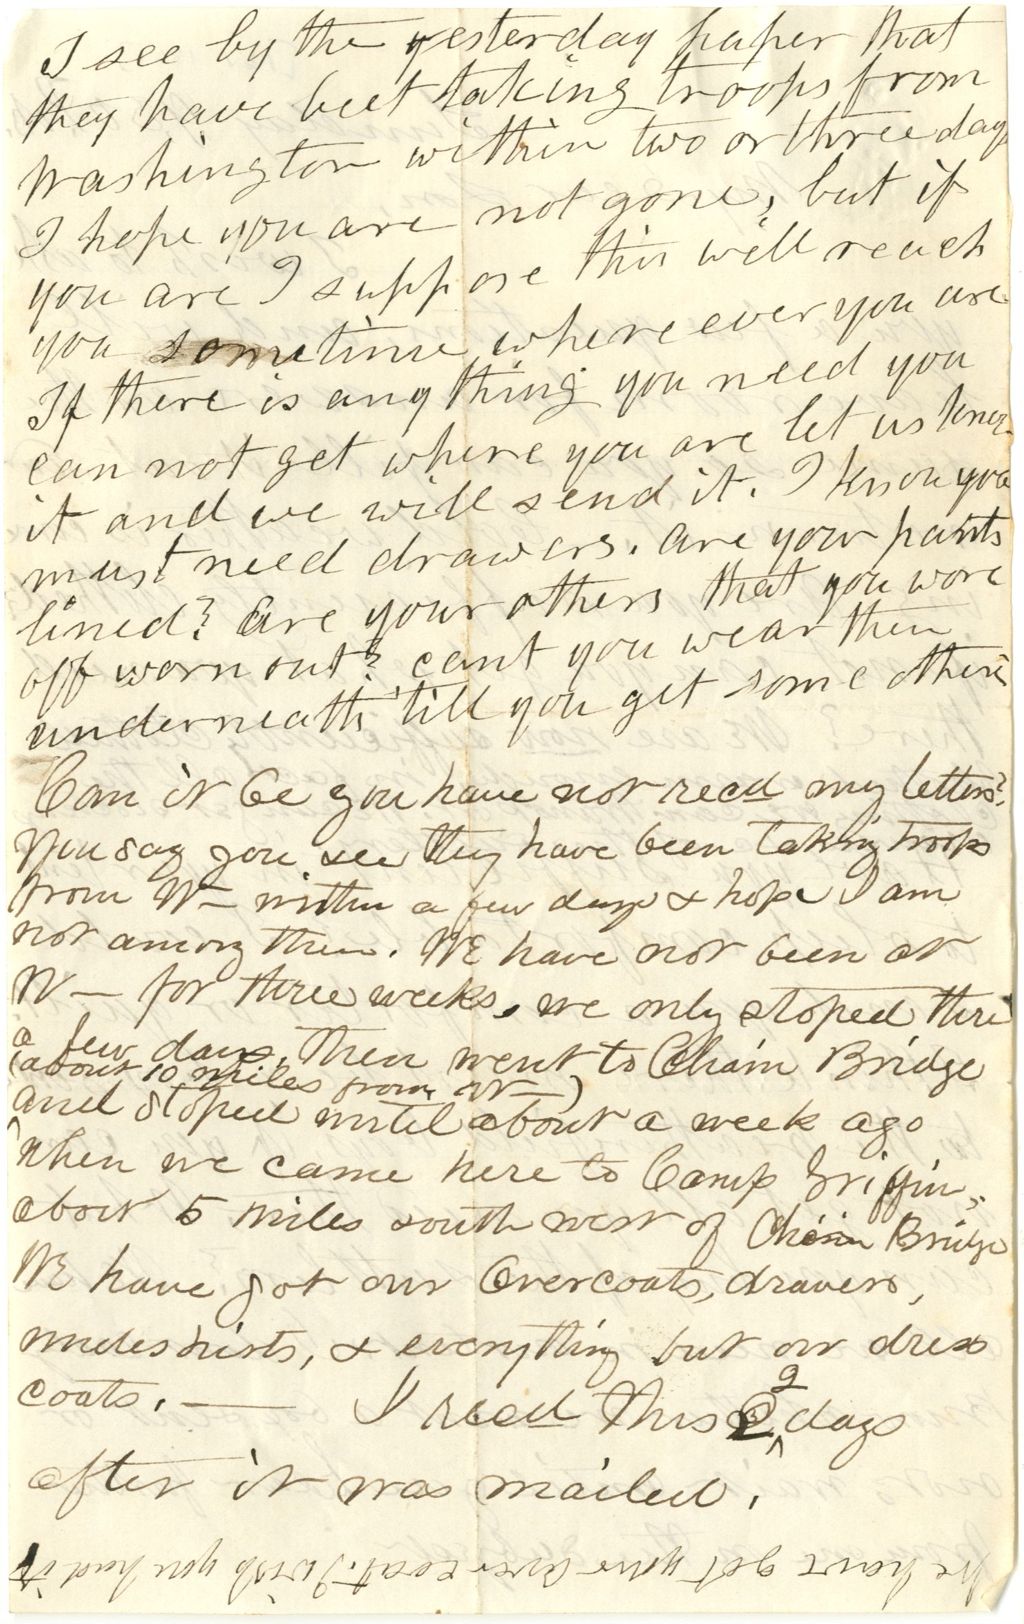 I see by the yesterday paper that
they have beet taking troops from
Washington within two or three days
I hope you are not gone, but if
you are I suppose this will reach
you sometime where ever you are
If there is any thing you need you
can not get where you are let us know
it and we will send it. I know you
must need drawers. are your pants
lined? are your others that you wore
off worn out? cant you wear them
underneath till you get some others
Can it be you have not recd my letters?
You say you see they have been taking troops
from W— within a few days & hope I am
not among them. We have not been at
W— for three weeks, we only stoped there
a few days, then went to Chain Bridge
(about 10 miles from W—)
and stoped until about a week ago
when we came here to Camp Griffin,
about 5 miles south west of Chain Bridge
We have got our Overcoats, drawers,
undershirts, & everything but our dress
coats. — I recd this 2 days
after it was mailed.
We have got your over coat. I wish you had it